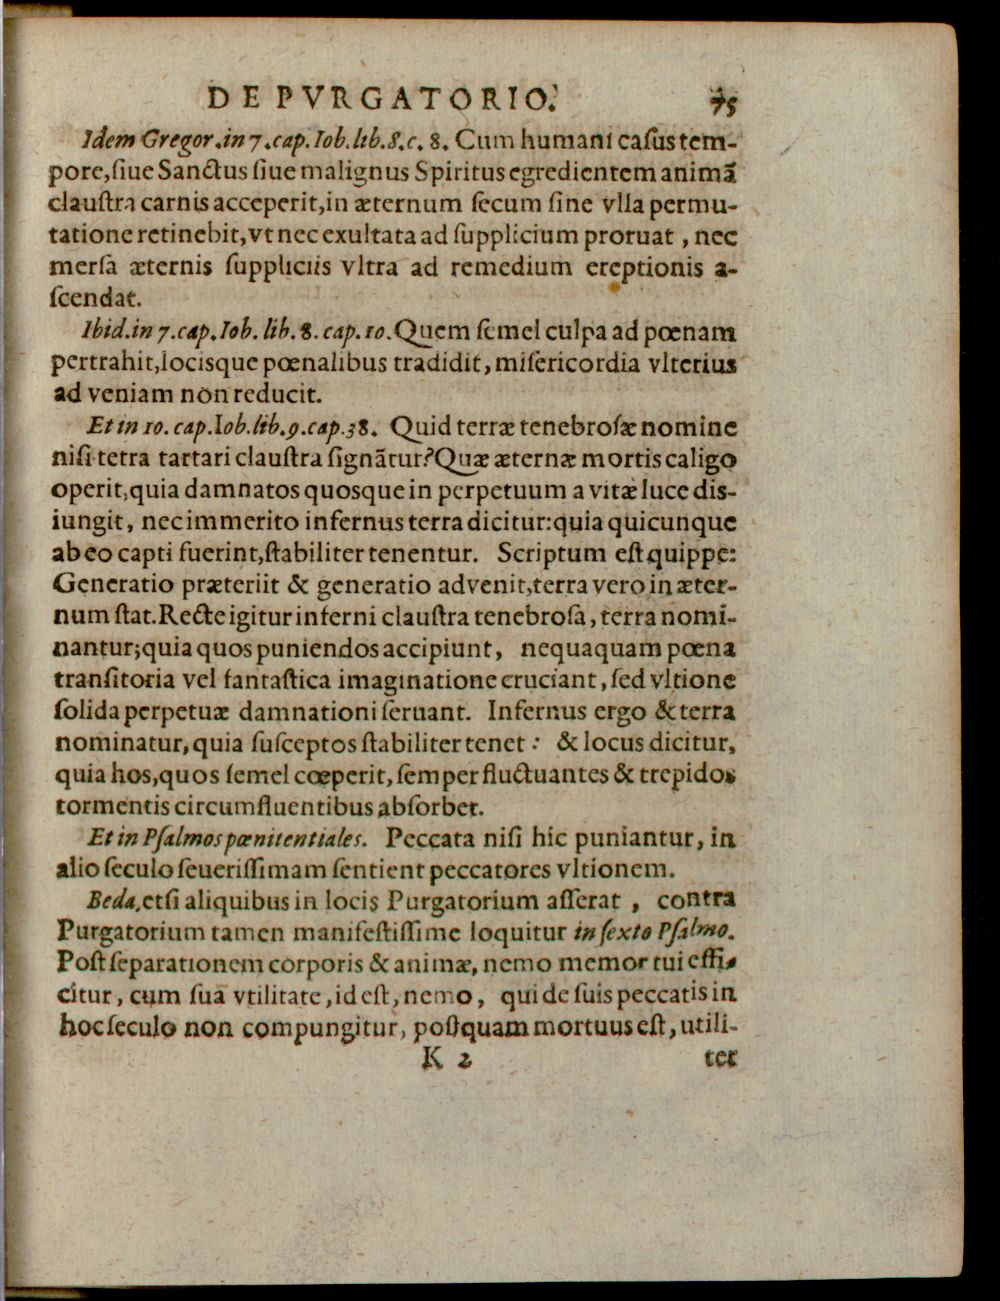 DE PVRGATORIO. 75
Idem Gregor. in 7. cap. Iob. lib. 8. c. 8. Cum humani casus tem-
pore, siue Sanctus siue malignus Spiritus egredientem animã
claustra carnis acceperit, in æternum secum sine vlla permu-
tatione retinebit, vt nec exultata ad supplicium proruat, nec
mersa æternis suppliciis vltra ad remedium ereptionis a-
scendat.
Ibid. in 7. cap. Iob. lib. 8. cap. 10. Quem semel culpa ad pœnam
pertrahit, locisque pœnalibus tradidit, misericordia vlterius
ad veniam non reducit.
Et in 10. cap. Iob. lib. 9. cap. 38. Quid terræ tenebrosæ nomine
nisi tetra tartari claustra signãtur? Quæ æternæ mortis caligo
operit, quia damnatos quosque in perpetuum a vitæ luce dis-
iungit, nec immerito infernus terra dicitur: quia quicunque
ab eo capti fuerint, stabiliter tenentur. Scriptum est quippe:
Generatio præteriit & generatio advenit, terra vero in æter-
num stat. Recte igitur inferni claustra tenebrosa, terra nomi-
nantur; quia quos puniendos accipiunt, nequaquam pœna
transitoria vel fantastica imaginatione cruciant, sed vltione
solida perpetuæ damnationi seruant. Infernus ergo & terra
nominatur, quia susceptos stabiliter tenet: & locus dicitur,
quia hos, quos semel cœperit, semper fluctuantes & trepidos
tormentis circumfluentibus absorbet.
Et in Psalmos pœnitentiales. Peccata nisi hic puniantur, in
alio seculo seuerissimam sentient peccatores vltionem.
Beda, etsi aliquibus in locis Purgatorium asserat, contra
Purgatorium tamen manifestissime loquitur in sexto Psalmo.
Post separationem corporis & animæ, nemo memor tui effi-
citur, cum sua vtilitate, id est, nemo, qui de suis peccatis in
hoc seculo non compungitur, postquam mortuus est, utili-
K 2 ter